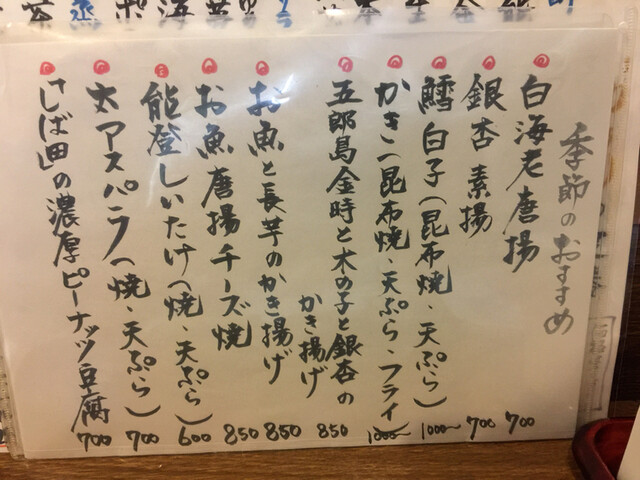 季節のおすすめ
白海老唐揚 700
銀杏 素揚 700
鱈白子(昆布焼・天ぷら) 1000〜
かき(昆布焼・天ぷら・フライ) 1000〜
五郎島金時と木の子と銀杏の
かき揚げ 850
お魚と長芋のかき揚げ 850
お魚唐揚チーズ焼 850
能登しいたけ(焼・天ぷら) 600
太アスパラ(焼・天ぷら) 700
「しば田」の濃厚ピーナッツ豆腐 700